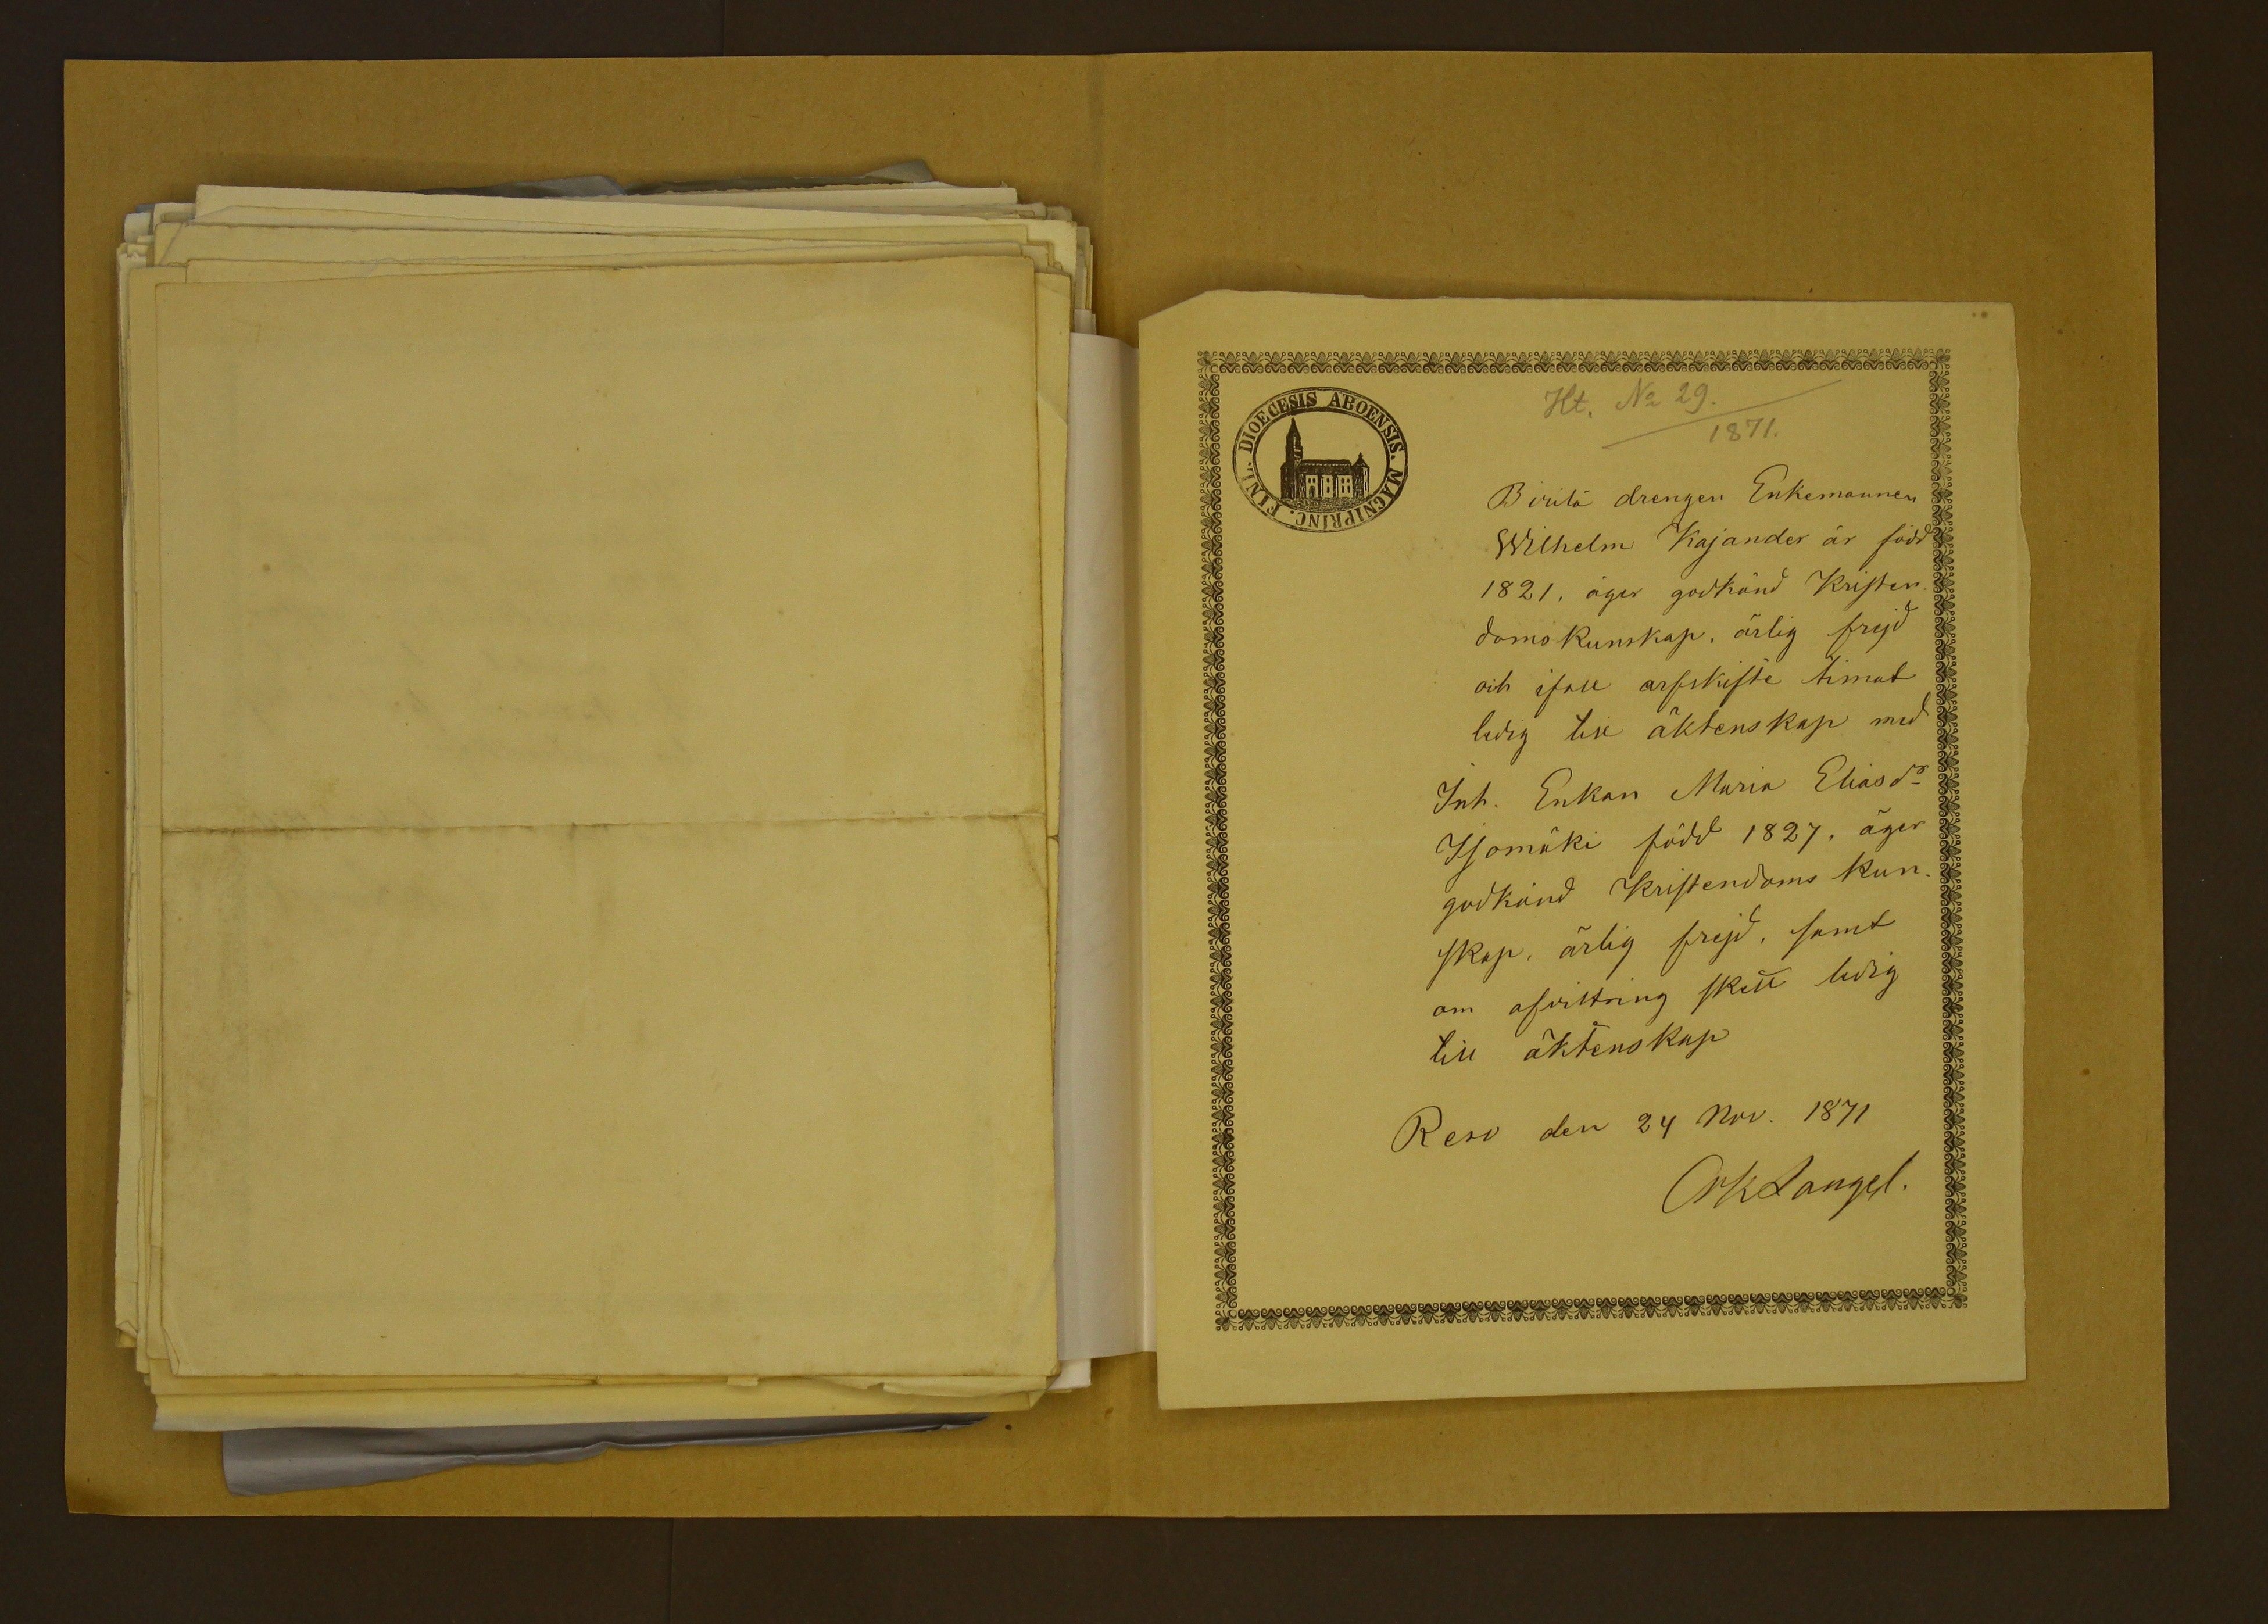 Ht. No 29.
1871.
DIOECESIS ABOENSIS. MAGNIPRINC. FINL.
Birilä drengen Enkemannen
Wilhelm Kajander är född
1821, äger godkänd Kristen-
doms Kunskap, ärlig frejd
och ifall arfskifte timat
ledig till äktenskap med
Inh. Enkan Maria Eliasdr
Isomäki född 1827, äger
godkänd Kristendoms kun-
skap, ärlig frejd, samt
om afvittring skett ledig
till äktenskap
Reso den 24 Nov. 1871
Langel.